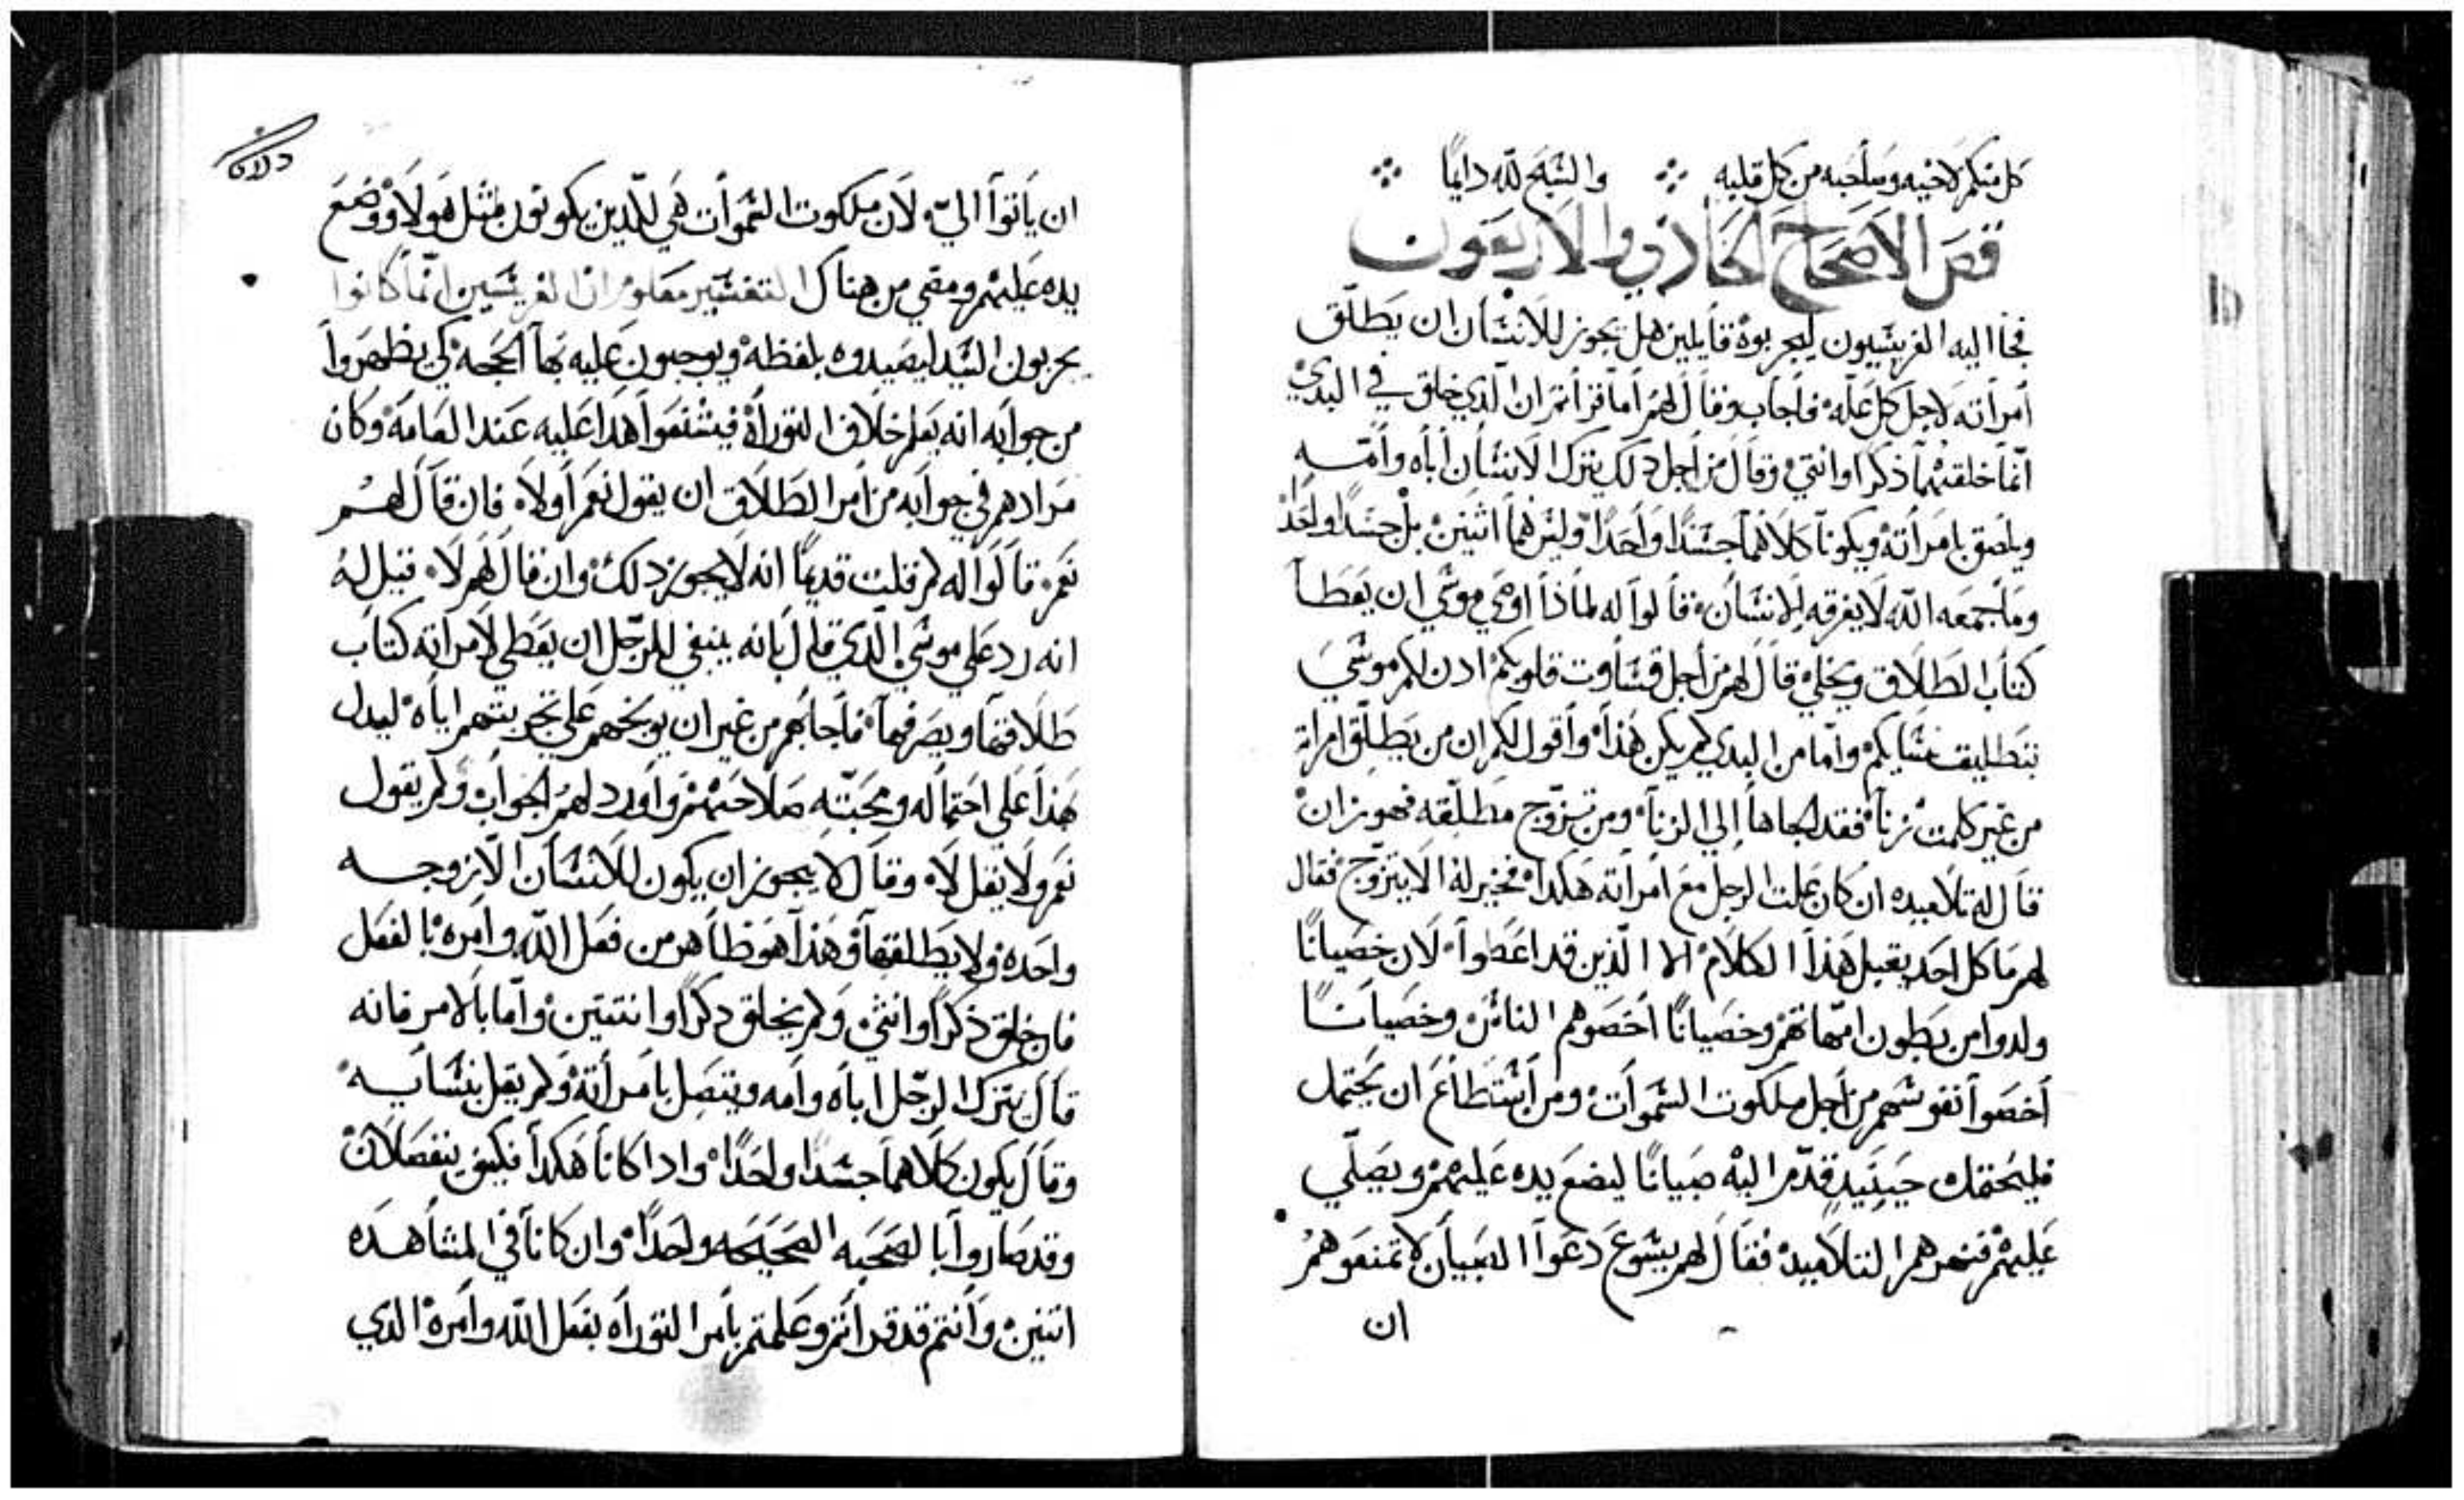 كل منكم لاخيه وسلحبه من كل قلبه والسَبح لله دايمًا
فص الاصحاح الحادي والاربعون
فجاا اليه الفريسيون ليجربوه قايلين هل يجوز للانسان ان يطلّق
أمراته لاجل كل علّه فاجاب وقال لهم أما قرأتم ان الّذي خلق في البدي
انّما خلقهما ذكرا وانتي وقال من اجل دلك يترك الانسان أباه وأمّه
ويلصق بامرأته ويكونا كلاهما جسدًا وأحدًا وليس هما اثنين بل جسدًا واحدًا
وما جمعه الله لا يفرقه الانسان فقالوا له لماذا اوصي موسي ان يعطا
كتاب الطلاق ويخلي قال لهم من أجل قساوت قلوبكم ادن لكم موسي
بتطليق نسايكم وامّا من البدي لم يكن هذا وأقول لكم ان من يطلّق امراته
من غير كلمت زنا فقد الجاها إلي الزنا ومن تزوّج مطلّقه فهو زان
قال له تلاميده ان كان علت الرجل مع امرأته هكدا فخير له الا يتزوّج فقال
لهم ما كل احد يقبل هذا الكلام الا الّذين قد اعطوا لان خصيانًا
ولدوا من بطون امّهاتهم وخصيانًا أخصوهم الناس وخصيانًا
أخصوا نفوسهم من اجل ملكوت السموات ومن أستطاع ان يحتمل
فليحتمل حينيدٍ قدّموا اليه صبيانًا ليضع يده عليهم ويصلّي
عليهم فنهروهم التلاميد فقال لهم يسوع دعوا الصبيان لا تمنعوهم
ان
ان يأتوا اليّ لان ملكوت السموات هي للّدين يكونون مثل هولا ووضع
يده عليهم ومضي من هناك التفسير معلوم ان الفريسيين انّما كانوا
يجربون السيد ليصيدوه بلفظه ويوجبون عليه بها الحجه كي يظهروا
من جوابه انه يعلم خلاف التوراه فيشنعوا هدا عليه عند العامه وكان
مرادهم في جوابه من أمر الطلاق ان يقول نعم أو لا فان قال لهم
نعم قالوا له لم قلت قديمًا انه لا يجوز دلك وان قال لهم لا قيل له
انه رد علي موسي الّذي قال بانه ينبغي للرجّل ان يعطي لامراته كتاب
طلاقها ويصرفها فاجابهم من غير ان يوبخهم علي تجربتهم اياه ليدل
هذا علي احتماله ومحبّته صلاحهم وأورد لهم الجواب ولم يقول
نعم ولا يقل لا وقال لا يجوز ان يكون للانسان الا زوجه
واحده ولا يطلقها وهذا هو ظاهر من فعل الله وامره بالفعل
فان خلق ذكرًا وانثي ولم يخلق دكرًا وانتتين وأمّا بالامر فانه
قال يترك الرجّل أباه وأمه ويتصل بامرأته ولم يقل بنسايه
وقال يكون كلاهما جسدًا واحدًا وادا كانا هكدا فكيف ينفصلان
وقد صاروا بالصحبه الصحيحه واحدًا وان كانا في المشاهده
اتنين وأنتم قد قرأتم وعلمتم بامر التوراه بفعل الله وأمره الدي